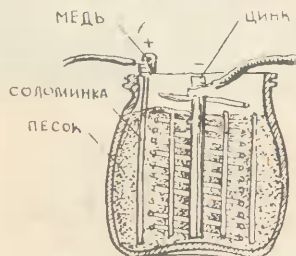 МЕДЬ
ЦИНК
+
−
СОЛОМИНКА
ПЕСОК